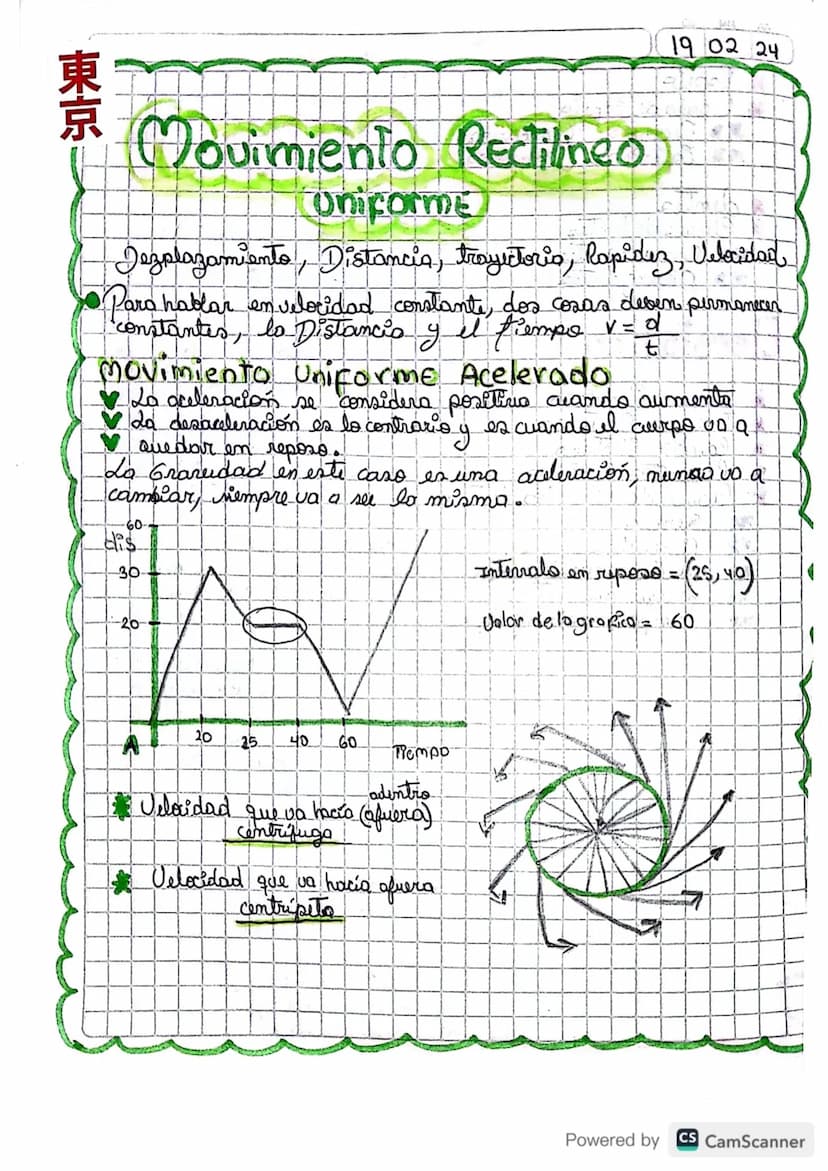 19 02 24
東京
Movimiento Rectilineo
uniforme
Dezplazamiento, Distancia, trayectoria, Rapidez, Velocidad
Para hablar en velocidad constante, dos cosas deben permanecer
constantes, la Distancia y el tiempo v = d/t
Movimiento Uniforme Acelerado
La aceleración se considera positiva cuando aumenta
La desaceleración es lo contrario y es cuando el cuerpo va a
quedar en reposo.
La Gravedad en este caso es una aceleración, nunca va a
cambiar, siempre va a ser lo mismo.
60
dis
30
20
Intervalo en reposo = (25, 40)
Valor de la grafica = 60
A
20 25 40 60 Tiempo
adentro
Velocidad que va hacía (afuera)
centrífuga
Velocidad que va hacía afuera
centrípeta
Powered by CS CamScanner